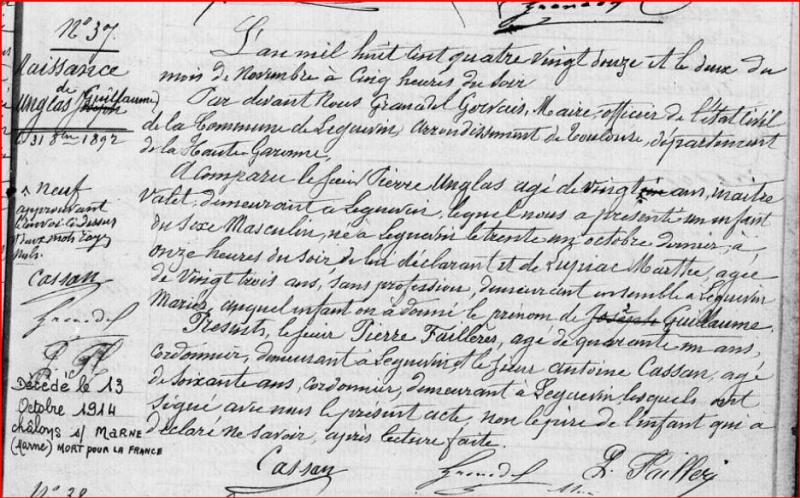 N° 37
Naissance
de
Unglas (Guillaume)
Joseph
31 8bre 1892
neuf
approuvant
le renvoi ci dessus
deux mots rayés
nuls.
Cassan
Grandel
P. F
Décédé le 13
Octobre 1914
châlons s/ MARNE
(Marne) MORT POUR LA FRANCE
L'an mil huit cent quatre vingt douze et le deux du
mois de Novembre à cinq heures du soir
Par devant Nous Grandel Gervais, Maire, officier de l'état civil
de la Commune de Leguevin arrondissement de Toulouse, département
de la Haute Garonne,
A Comparu le sieur Pierre Unglas agé de vingt ans, maitre
Valet, demeurant à Leguevin, lequel nous a présenté un enfant
du Sexe Masculin, né à Leguevin le trente un octobre dernier, à
onze heures du soir de lui déclarant et de Lupiac Marthe, agée
de Vingt trois ans, sans profession, demeurant ensemble à Leguevin
Mariés, auquel enfant on a donné le prénom de Joseph Guillaume.
Présents, le sieur Pierre Faillères, agé de quarante un ans,
Cordonnier, demeurant à Leguevin et le sieur antoine Cassan, agé
de soixante ans, cordonnier, demeurant à Leguevin, lesquels ont
signé avec nous le présent acte, non le père de l'enfant qui a
déclaré ne savoir, après lecture faite.
Cassan Grandel P. Failleres
N° 38